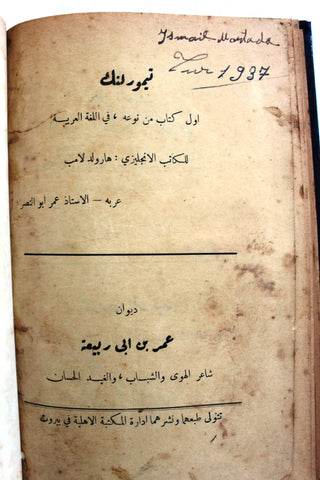 Ismail Mustada
1937
تيمور لنك
اول كتاب من نوعه ، في اللغة العربية
للكاتب الانجليزي : هارولد لامب
عربه – الاستاذ عمر ابو النصر
ديوان
عمر بن ابي ربيعة
شاعر الهوى والشباب ، والغيد الحسان
تتولى طبعهما ونشرهما ادارة المكتبة الاهلية في بيروت